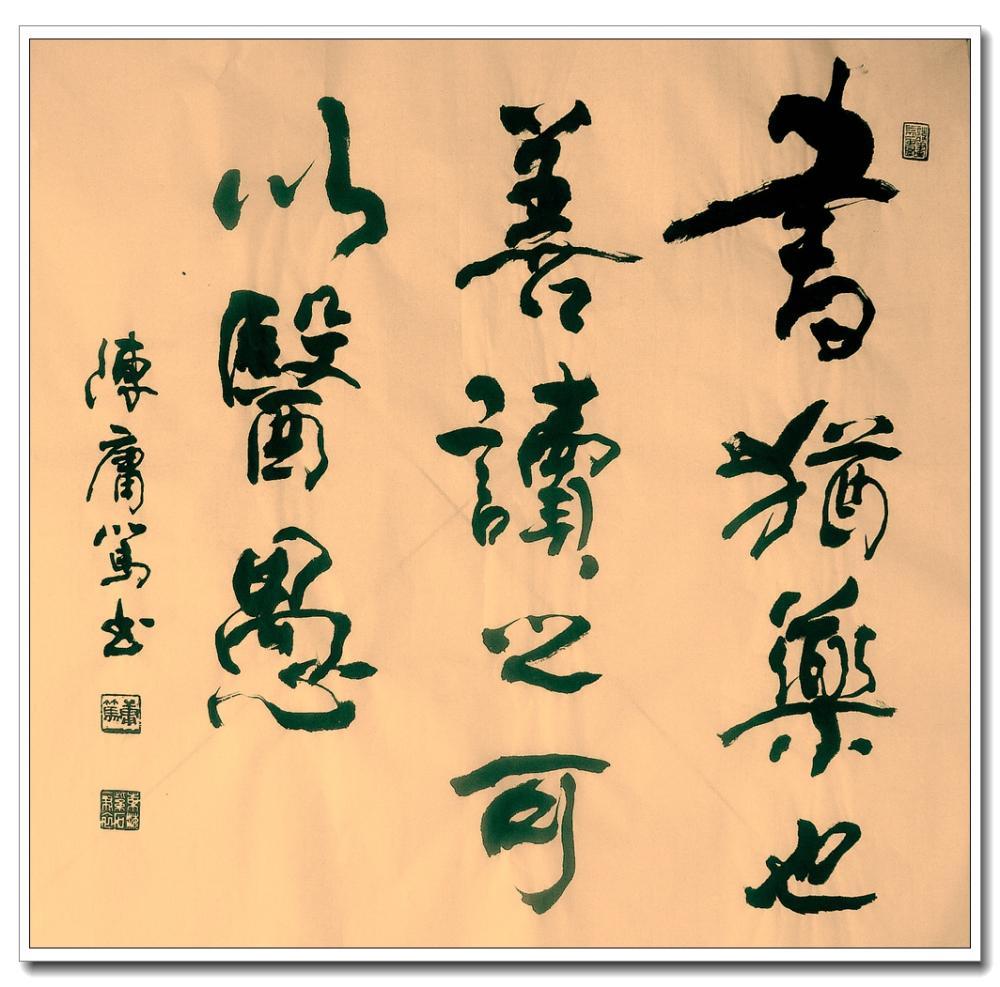 書猶藥也
善讀之可
以醫愚
陳庸篤书